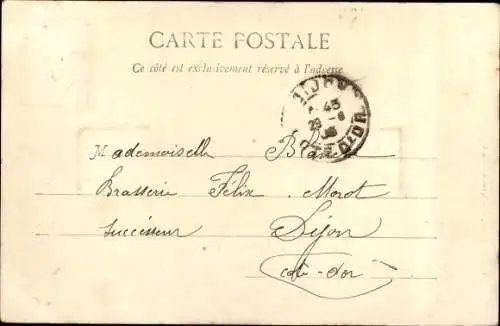 CARTE POSTALE
Ce côté est exclusivement réservé à l'adresse
DIJON
45
29 - 8
COTE D'OR
Mademoiselle
Brasserie Félix Morot
Successeur Dijon
Côte-d'or